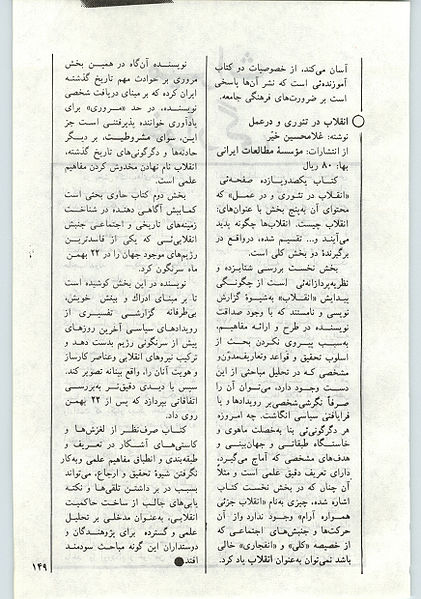 آسان می‌کند، از خصوصیات دو کتاب
آموزنده‌ئی است که نشر آن‌ها پاسخی
است بر ضرورت‌های فرهنگی جامعه.
انقلاب در تئوری و درعمل
نوشته: غلامحسین خیّر
از انتشارات: مؤسسهٔ مطالعات ایرانی
بها: ۸۰ ریال
کتاب یکصدویازده صفحه‌ئی
«انقلاب در تئوری و در عمل» که
محتوای آن به‌پنج بخش با عنوان‌های:
انقلاب چیست. انقلاب‌ها چگونه پدید
می‌آیند و... تقسیم شده، درواقع در
برگیرندهٔ دو بخش کلی است.
بخش نخست بررسی شتابزده و
نظریه‌پردازانه‌ئی است از چگونگی
پیدایش «انقلاب» به‌شیوهٔ گزارش
نویسی و نامستند که با وجود صداقت
نویسنده در طرح و ارائه مفاهیم،
به‌سبب پیروی نکردن بحث از
اسلوب تحقیق و قواعد وتعاریف‌مدوّن‌و
مشخصی که در تحلیل مباحثی از این
دست وجود دارد، می‌توان آن را
صرفاً نگرشی‌شخصی‌بر رویدادها و یا
فرایافتی سیاسی انگاشت. چه امروزه
هر دگرگونی‌ئی بنا به‌خصلت ماهوی و
خاستگاه طبقاتی و جهان‌بینی و
هدف‌های مشخصی که آماج می‌گیرد،
دارای تعریف دقیق علمی است و مثلاً
آن چنان که در بخش نخست کتاب
اشاره شده، چیزی به‌نام «انقلاب جزئی
همواره آرام» وجود ندارد واز آن
حرکت‌ها و جنبش‌های اجتماعی که
از خصیصه «کلی» و «انفجاری» خالی
باشد نمی‌توان به‌عنوان انقلاب یاد کرد.
نویسنده آن‌گاه در همین بخش
مروری بر حوادث مهم تاریخ گذشته
ایران کرده که بر مبنای دریافت شخصی
نویسنده، در حد «مروری» برای
یادآوری خواننده پذیرفتنی است جز
این، سوای مشروطیت، بر دیگر
حادثه‌ها و دگرگونی‌های تاریخ گذشته،
انقلاب نام نهادن مخدوش کردن مفاهیم
علمی است.
بخش دوم کتاب حاوی بحثی است
کمابیش آگاهی دهنده در شناخت
زمینه‌های تاریخی و اجتماعی جنبش
انقلابی‌ئی که یکی از فاسدترین
رژیم‌های موجود جهان را در ۲۲ بهمن
ماه سرنگون کرد.
نویسنده در این بخش کوشیده است
تا بر مبنای ادراک و بینش خویش،
بی‌طرفانه گزارشی تفسیری از
رویدادهای سیاسی آخرین روزهای
پیش از سرنگونی رژیم بدست دهد و
ترکیب نیروهای انقلابی وعناصر کارساز
و هویت آنان را، واقع بینانه تصویر کند.
سپس با دیدی دقیق‌تر به‌بررسی
اتفاقاتی بپردازد که پس از ۲۲ بهمن
روی داد.
کتاب صرف‌نظر از لغزش‌ها و
کاستی‌های آشکار در تعریف و
طبقه‌بندی و انطباق مفاهیم علمی وبه‌کار
نگرفتن شیوهٔ تحقیق و ارجاع، می‌تواند
بسبب در بر داشتن تلقی‌ها و نکته
یابی‌های جالب از ساخت حاکمیت
انقلابی، به‌عنوان مدخلی بر تحلیل
علمی و گسترده برای پژوهندگان و
دوستداران این گونه مباحث سودمند
افتد
۱۴۹